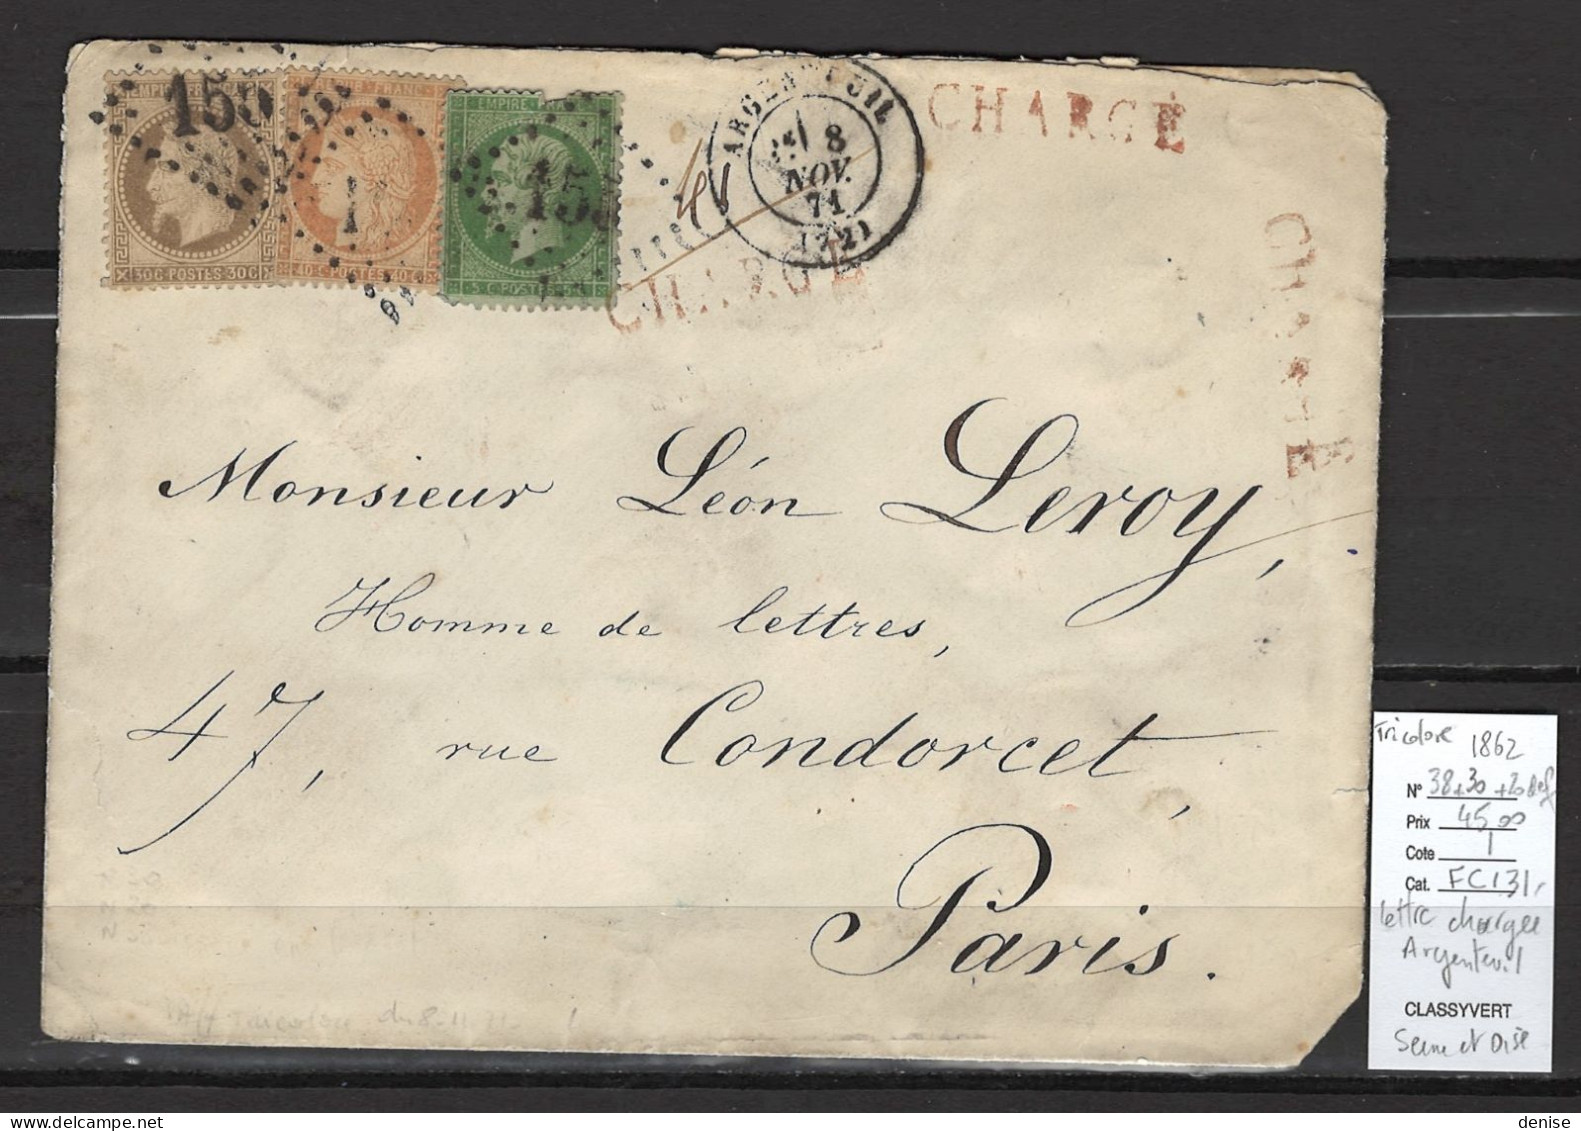 EMPIRE FRANÇAIS
30C POSTES 30C
155
REPUB FRANC
40C POSTES 40C
EMPIRE FRA
5 C POSTES
155
ARGENTEUIL
8
NOV.
71
(72)
CHARGÉ
CHARGÉ
CHARGÉ
Monsieur Léon Leroy,
Homme de lettres,
47, rue Condorcet,
Paris.
Tricolore du 8.11.71
Tricolore 1862
N° 38+30+20 def
Prix 45 00
Cote
Cat. FC131
lettre chargee
Argenteuil
CLASSYVERT
Seine et Oise
denise